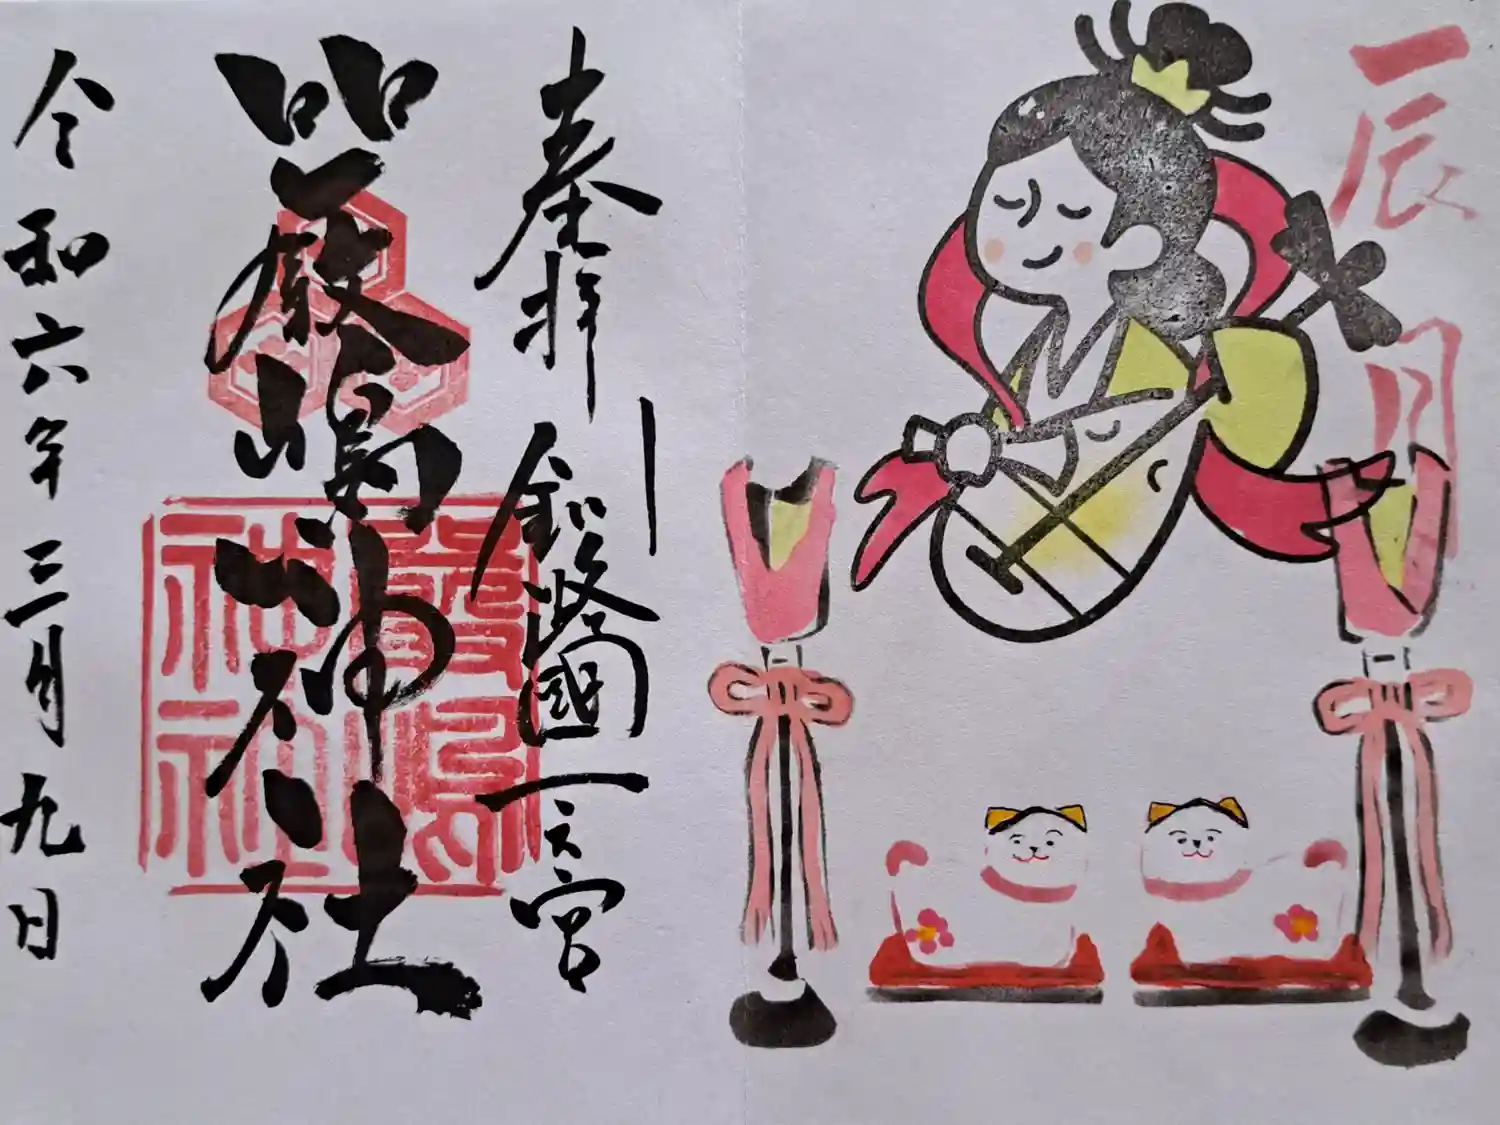 一辰月
奉拝
釧路國一之宮
嚴嶋神社
嚴島
神社
令和六年三月九日